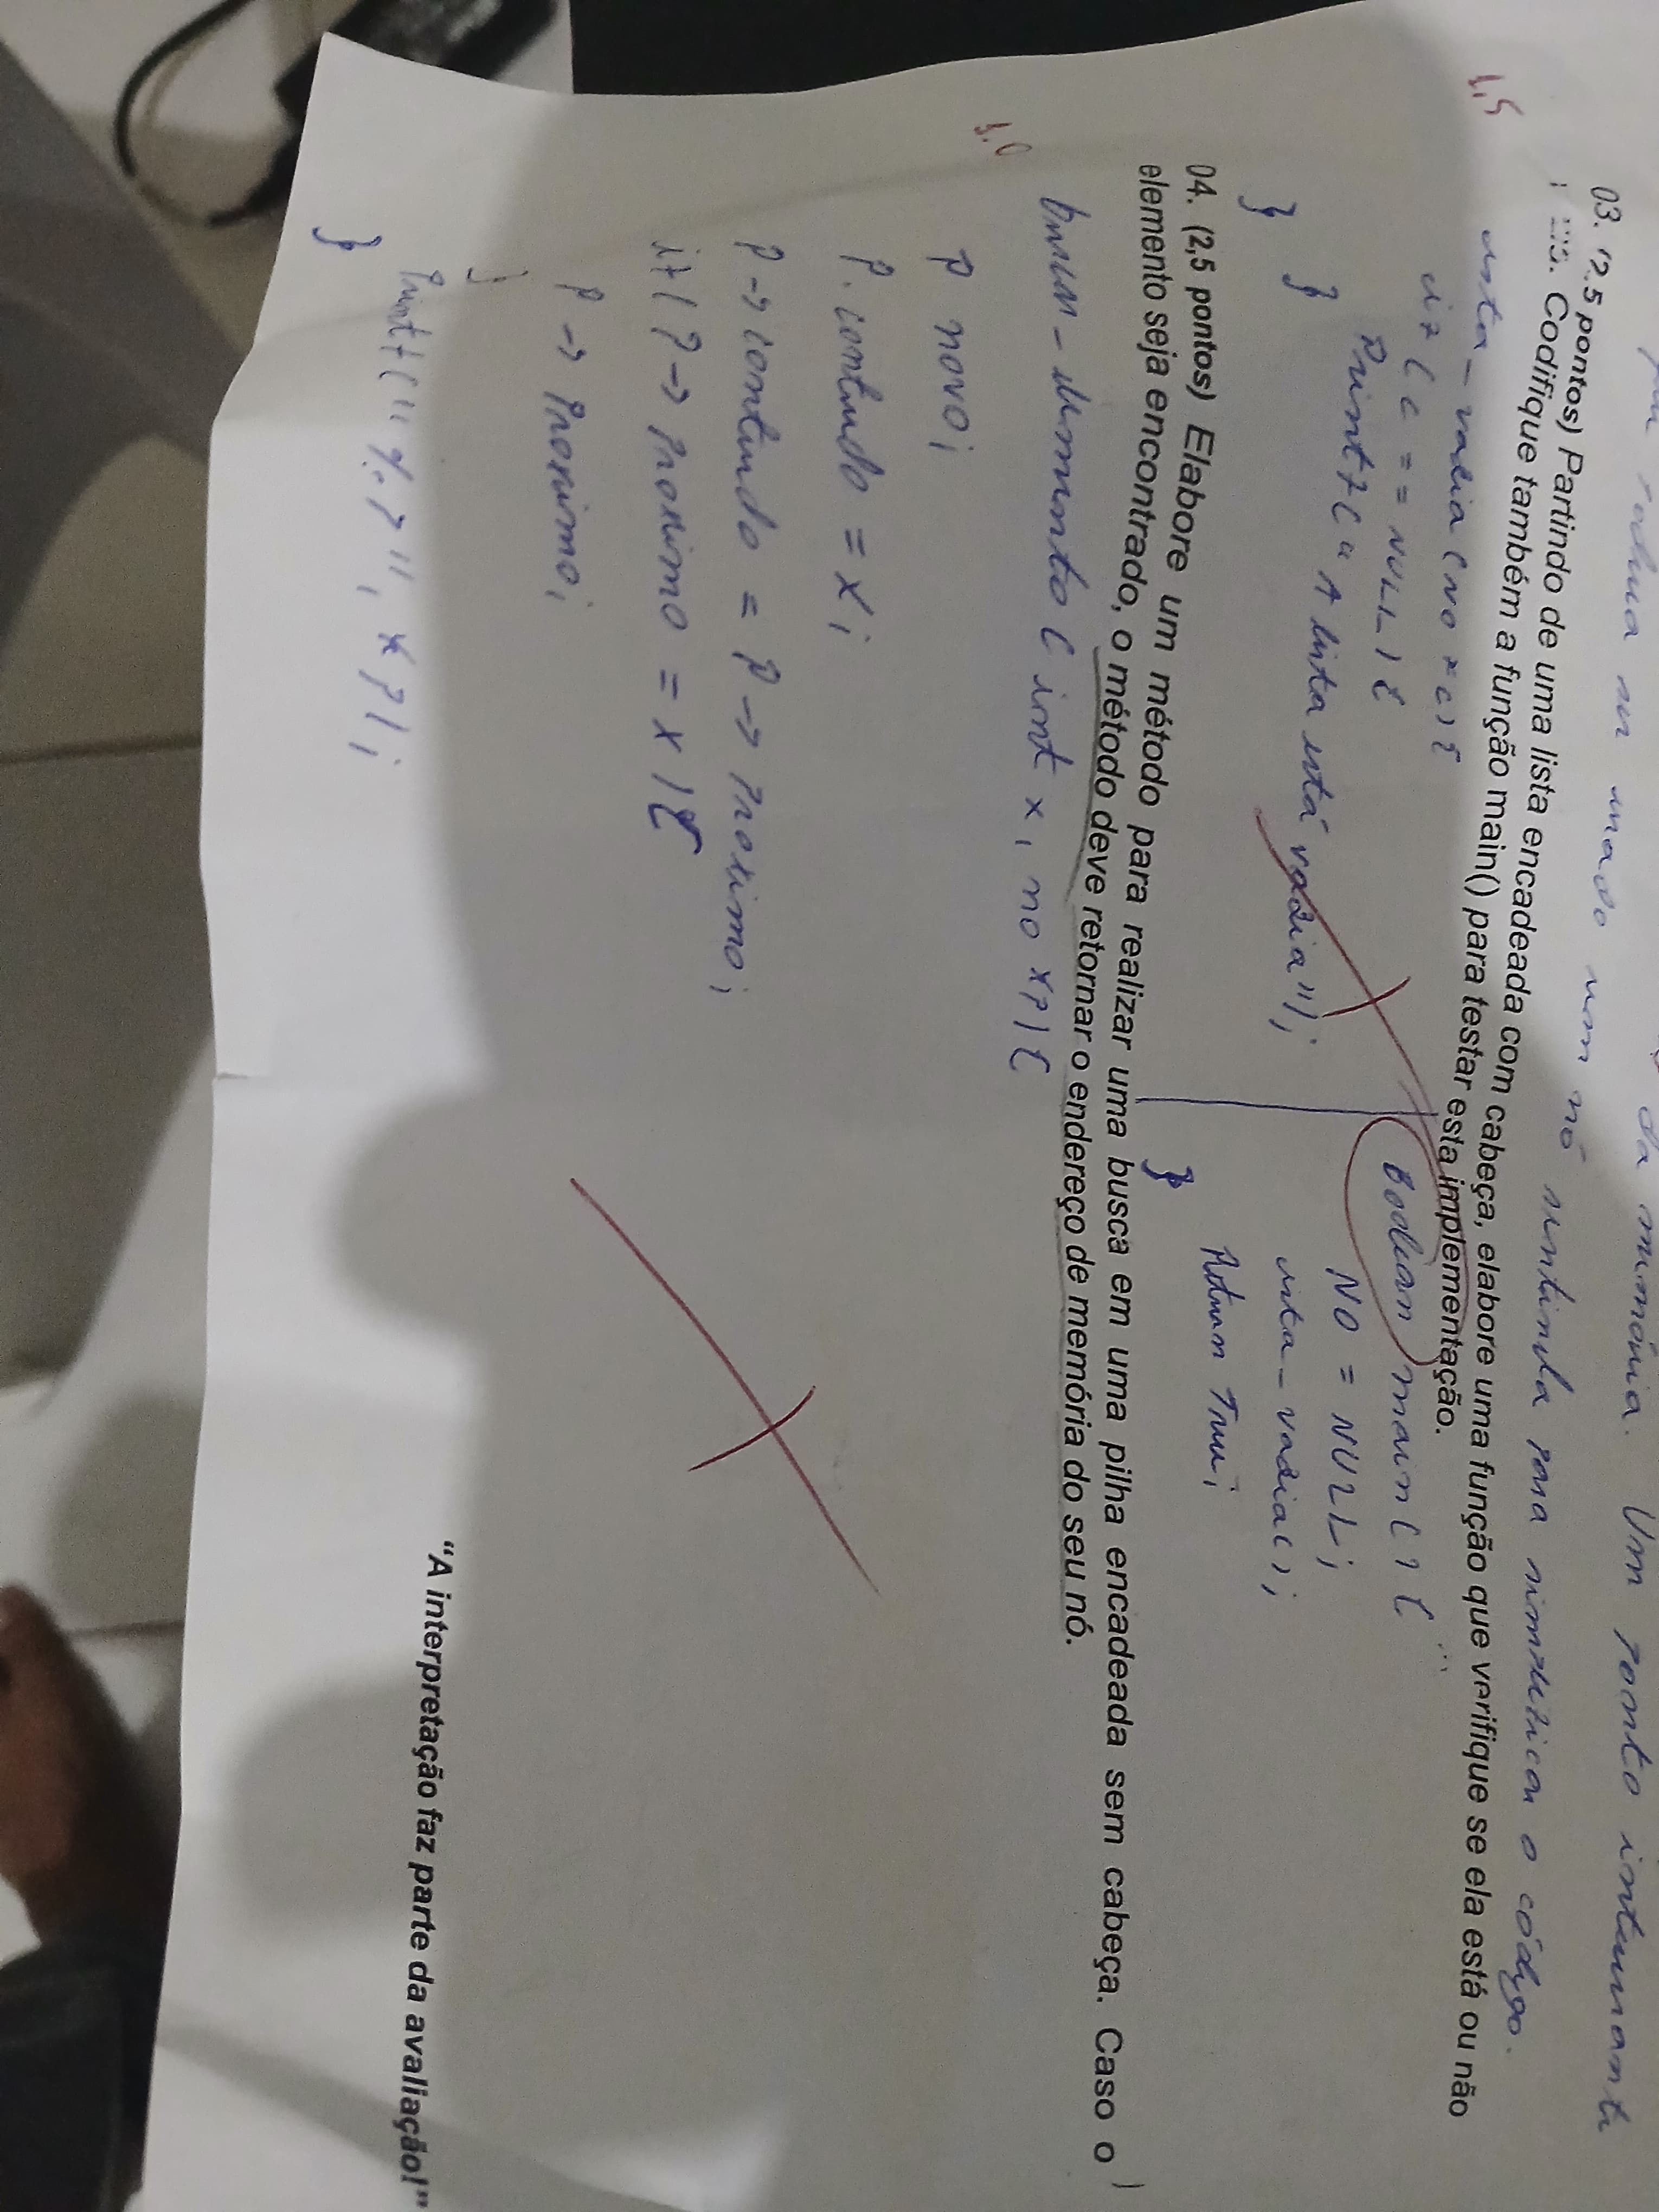 da memória. Um ponto interessante
num nó sentinela para simplificar o código.
03. (2.5 pontos) Partindo de uma lista encadeada com cabeça, elabore uma função que verifique se ela está ou não
Codifique também a função main() para testar esta implementação.
1,5
esta_vazia (no *c){
if (c == NULL) {
Printf(" A lista está vazia");
}
}
Boolean main() {
NO = NULL;
esta_vazia();
Return True;
}
04. (2,5 pontos) Elabore um método para realizar uma busca em uma pilha encadeada sem cabeça. Caso o
elemento seja encontrado, o método deve retornar o endereço de memória do seu nó.
1.0
int x, no *p) {
p novo;
p.conteudo = x;
p -> conteudo = p -> proximo;
if( p -> proximo = x ){
p -> proximo;
}
Printf("%p", *p);
}
“A interpretação faz parte da avaliação!”